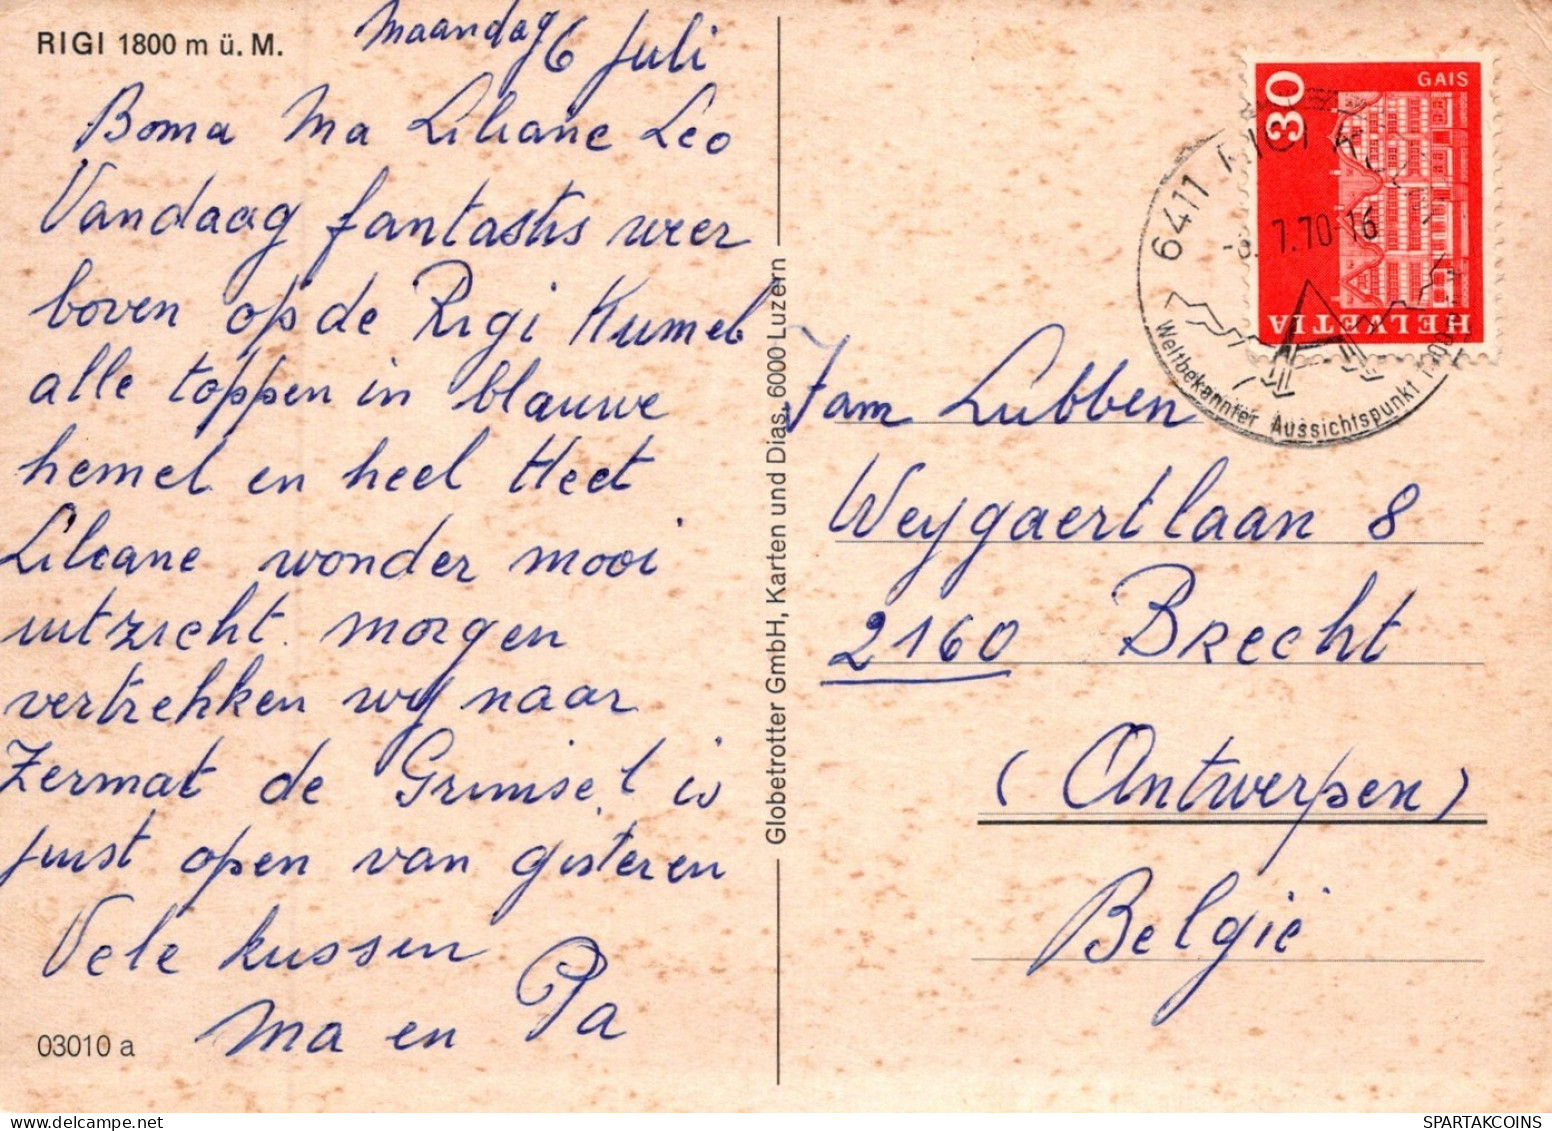 RIGI 1800 m ü. M.
Maandag 6 Juli
Boma Ma Liliane Leo
Vandaag fantastis weer
boven op de Rigi Kumel
alle toppen in blauwe
hemel en heel Heet
Liliane wonder mooi
uitzicht. morgen
vertrekken wy naar
Zermat de Grimsel is
juist open van gisteren
Vele kussen
Ma en Pa
03010 a
Globetrotter GmbH, Karten und Dias, 6000 Luzern
30
GAIS
HELVETIA
6411 RIGI
7.70-16
Weltbekannter Aussichtspunkt
Fam Lubben
Weygaertlaan 8
2160 Brecht
(Antwerpen)
België
SPARTAKCOINS